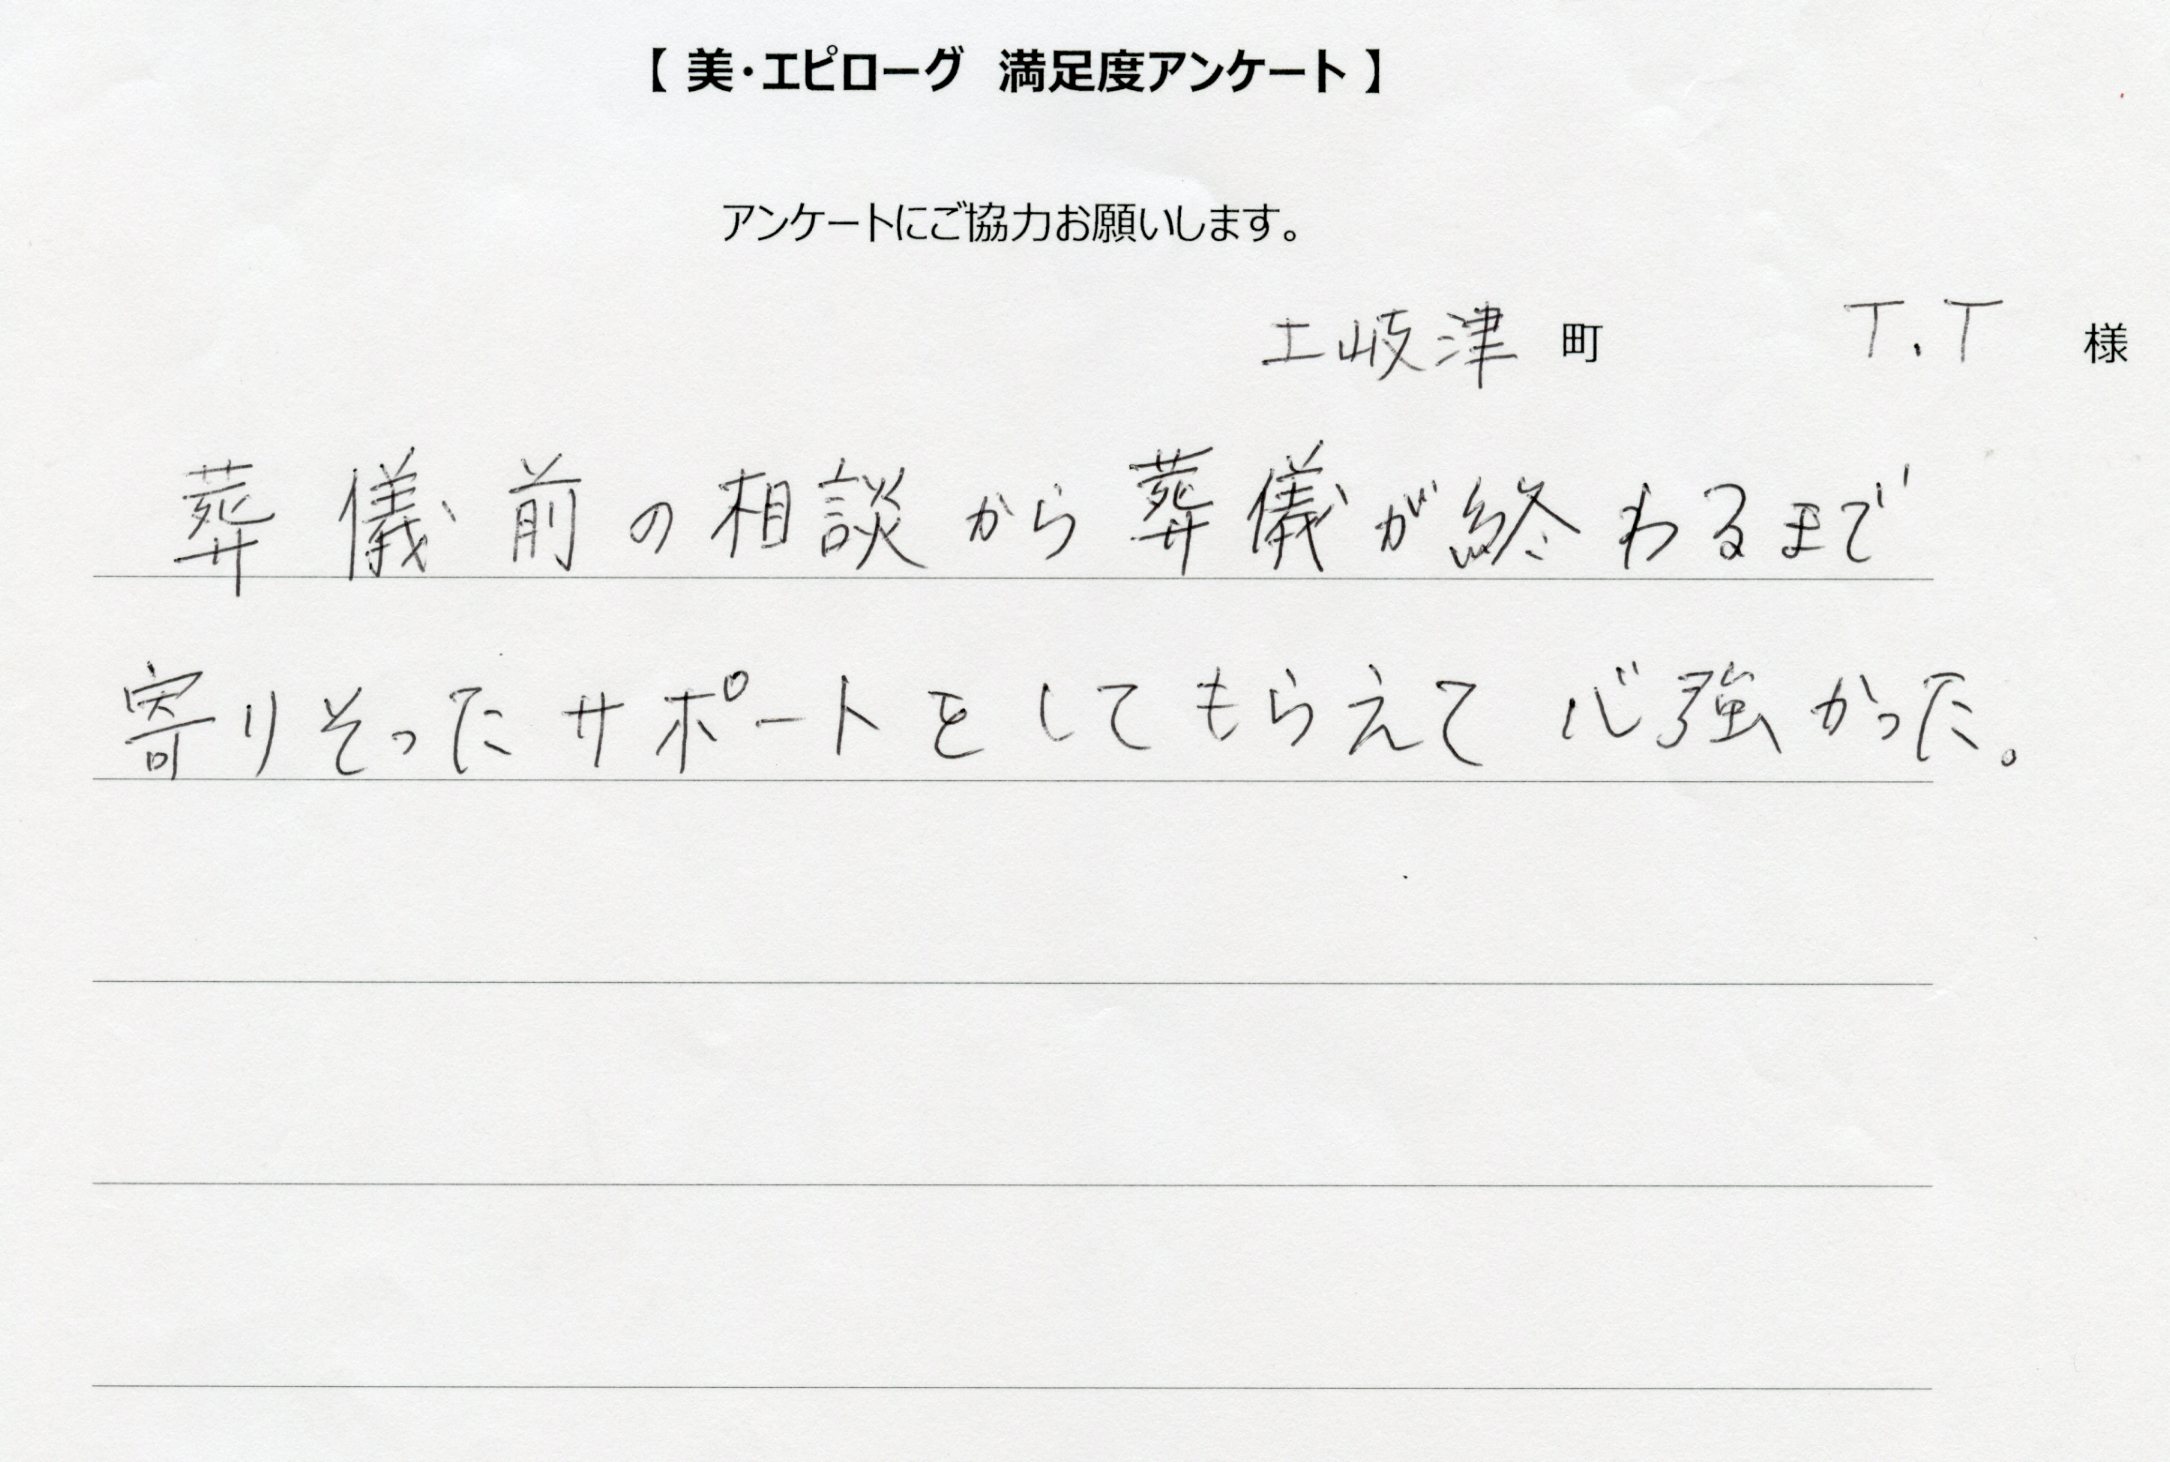 【 美・エピローグ 満足度アンケート 】
アンケートにご協力お願いします。
土岐津 町 T.T 様
葬儀前の相談から葬儀が終わるまで
寄りそったサポートをしてもらえて心強かった。